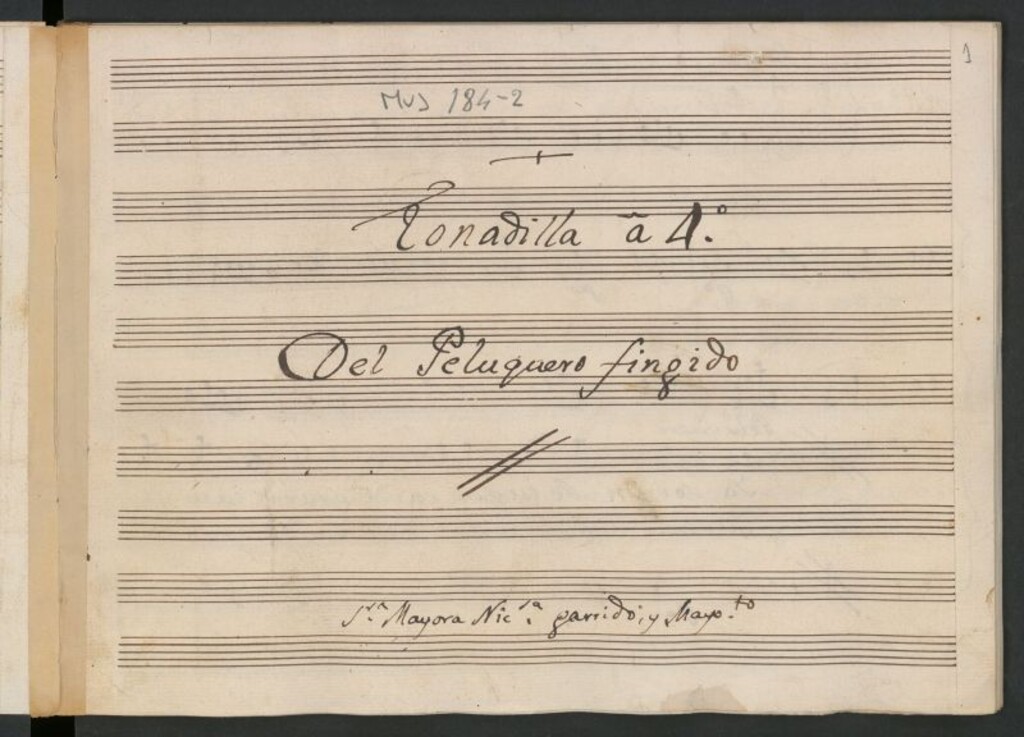 1
MUS 184-2
Tonadilla â 4.º
Del Peluquero fingido
S.ra Mayora Nic.sa garrido; y Mayo.to